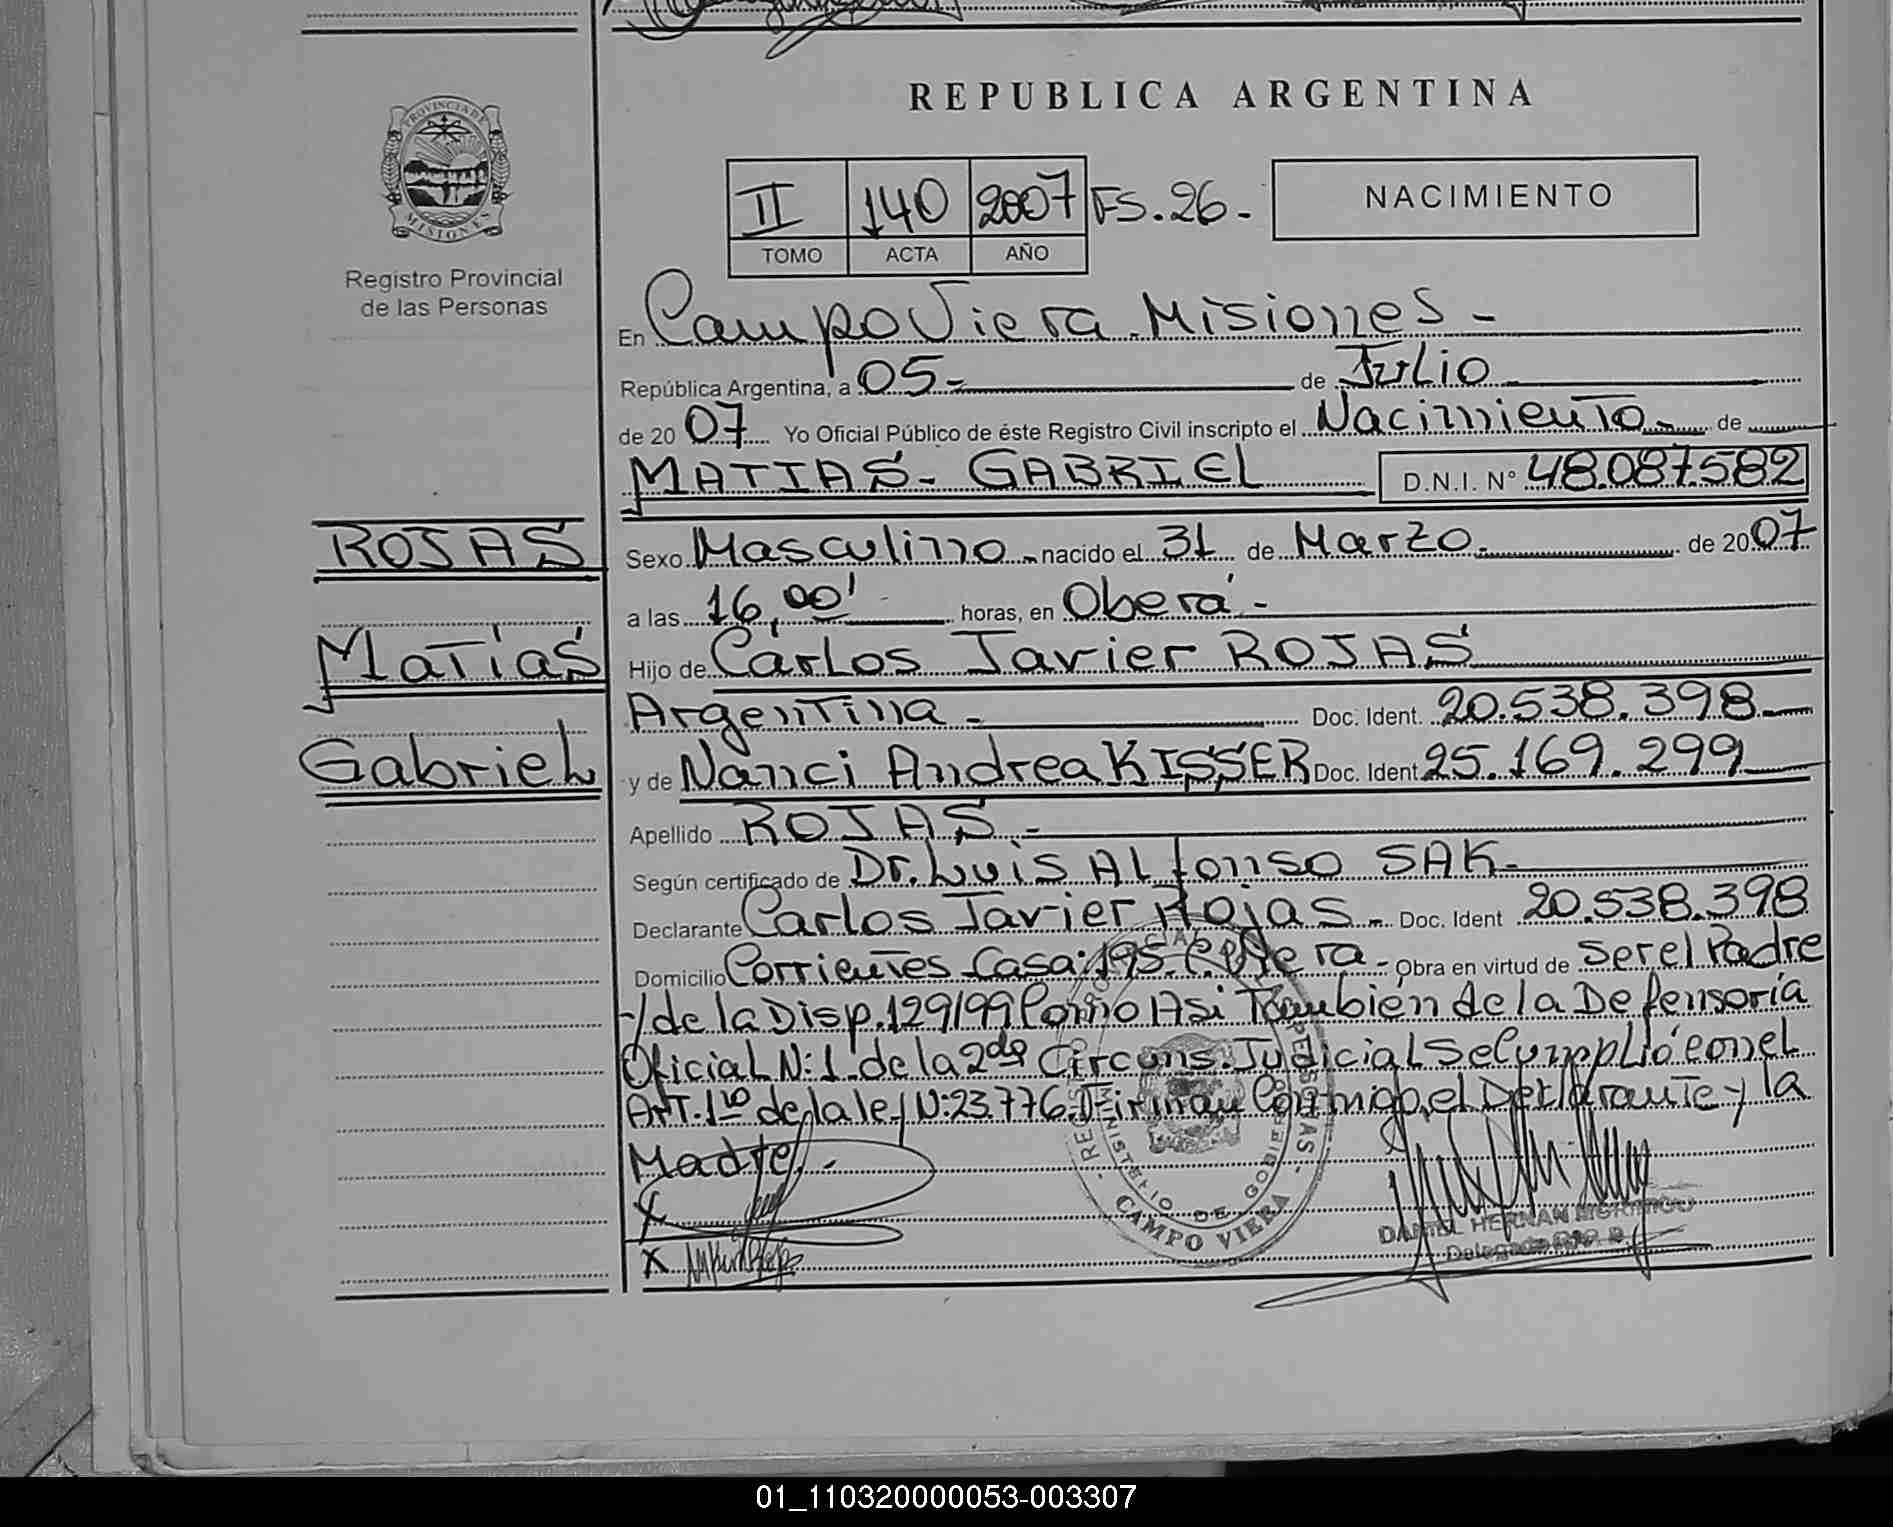 REPUBLICA ARGENTINA
PROVINCIA DE MISIONES
Registro Provincial
de las Personas
II 140 2007 FS. 26.-
TOMO ACTA AÑO
NACIMIENTO
En Campo Viera.Misiones -
República Argentina, a 05.- de Julio
de 20 07 Yo Oficial Público de éste Registro Civil inscripto el Nacimiento.- de
MATIAS - GABRIEL D.N.I. N° 48.087.582
ROJAS
Matias
Gabriel
Sexo Masculino nacido el 31 de Marzo. de 20 07
a las 16,00' horas, en Oberá -
Hijo de Carlos Javier ROJAS
Argentina - Doc. Ident. 20.538.398
y de Nanci Andrea KISSER Doc. Ident 25.169.299
Apellido ROJAS -
Según certificado de Dr. Luis Alfonso SAK-
Declarante Carlos Javier Rojas.- Doc. Ident 20.538.398
Domicilio Corrientes Casa: 195. C. Viera - Obra en virtud de Ser el Padre
-/ de la Disp. 129/99 Como Asi También de la Defensoría
Oficial N: 1 de la 2da Circuns. Judicial Se Cumplió con el
Art. 1ro de la ley N: 23.776. Firman Conmigo, el Declarante y la
Madre.-
X
X
CAMPO VIERA
MINISTERIO DE GOBIERNO
DANIEL HERNAN
Delegado
01_110320000053-003307